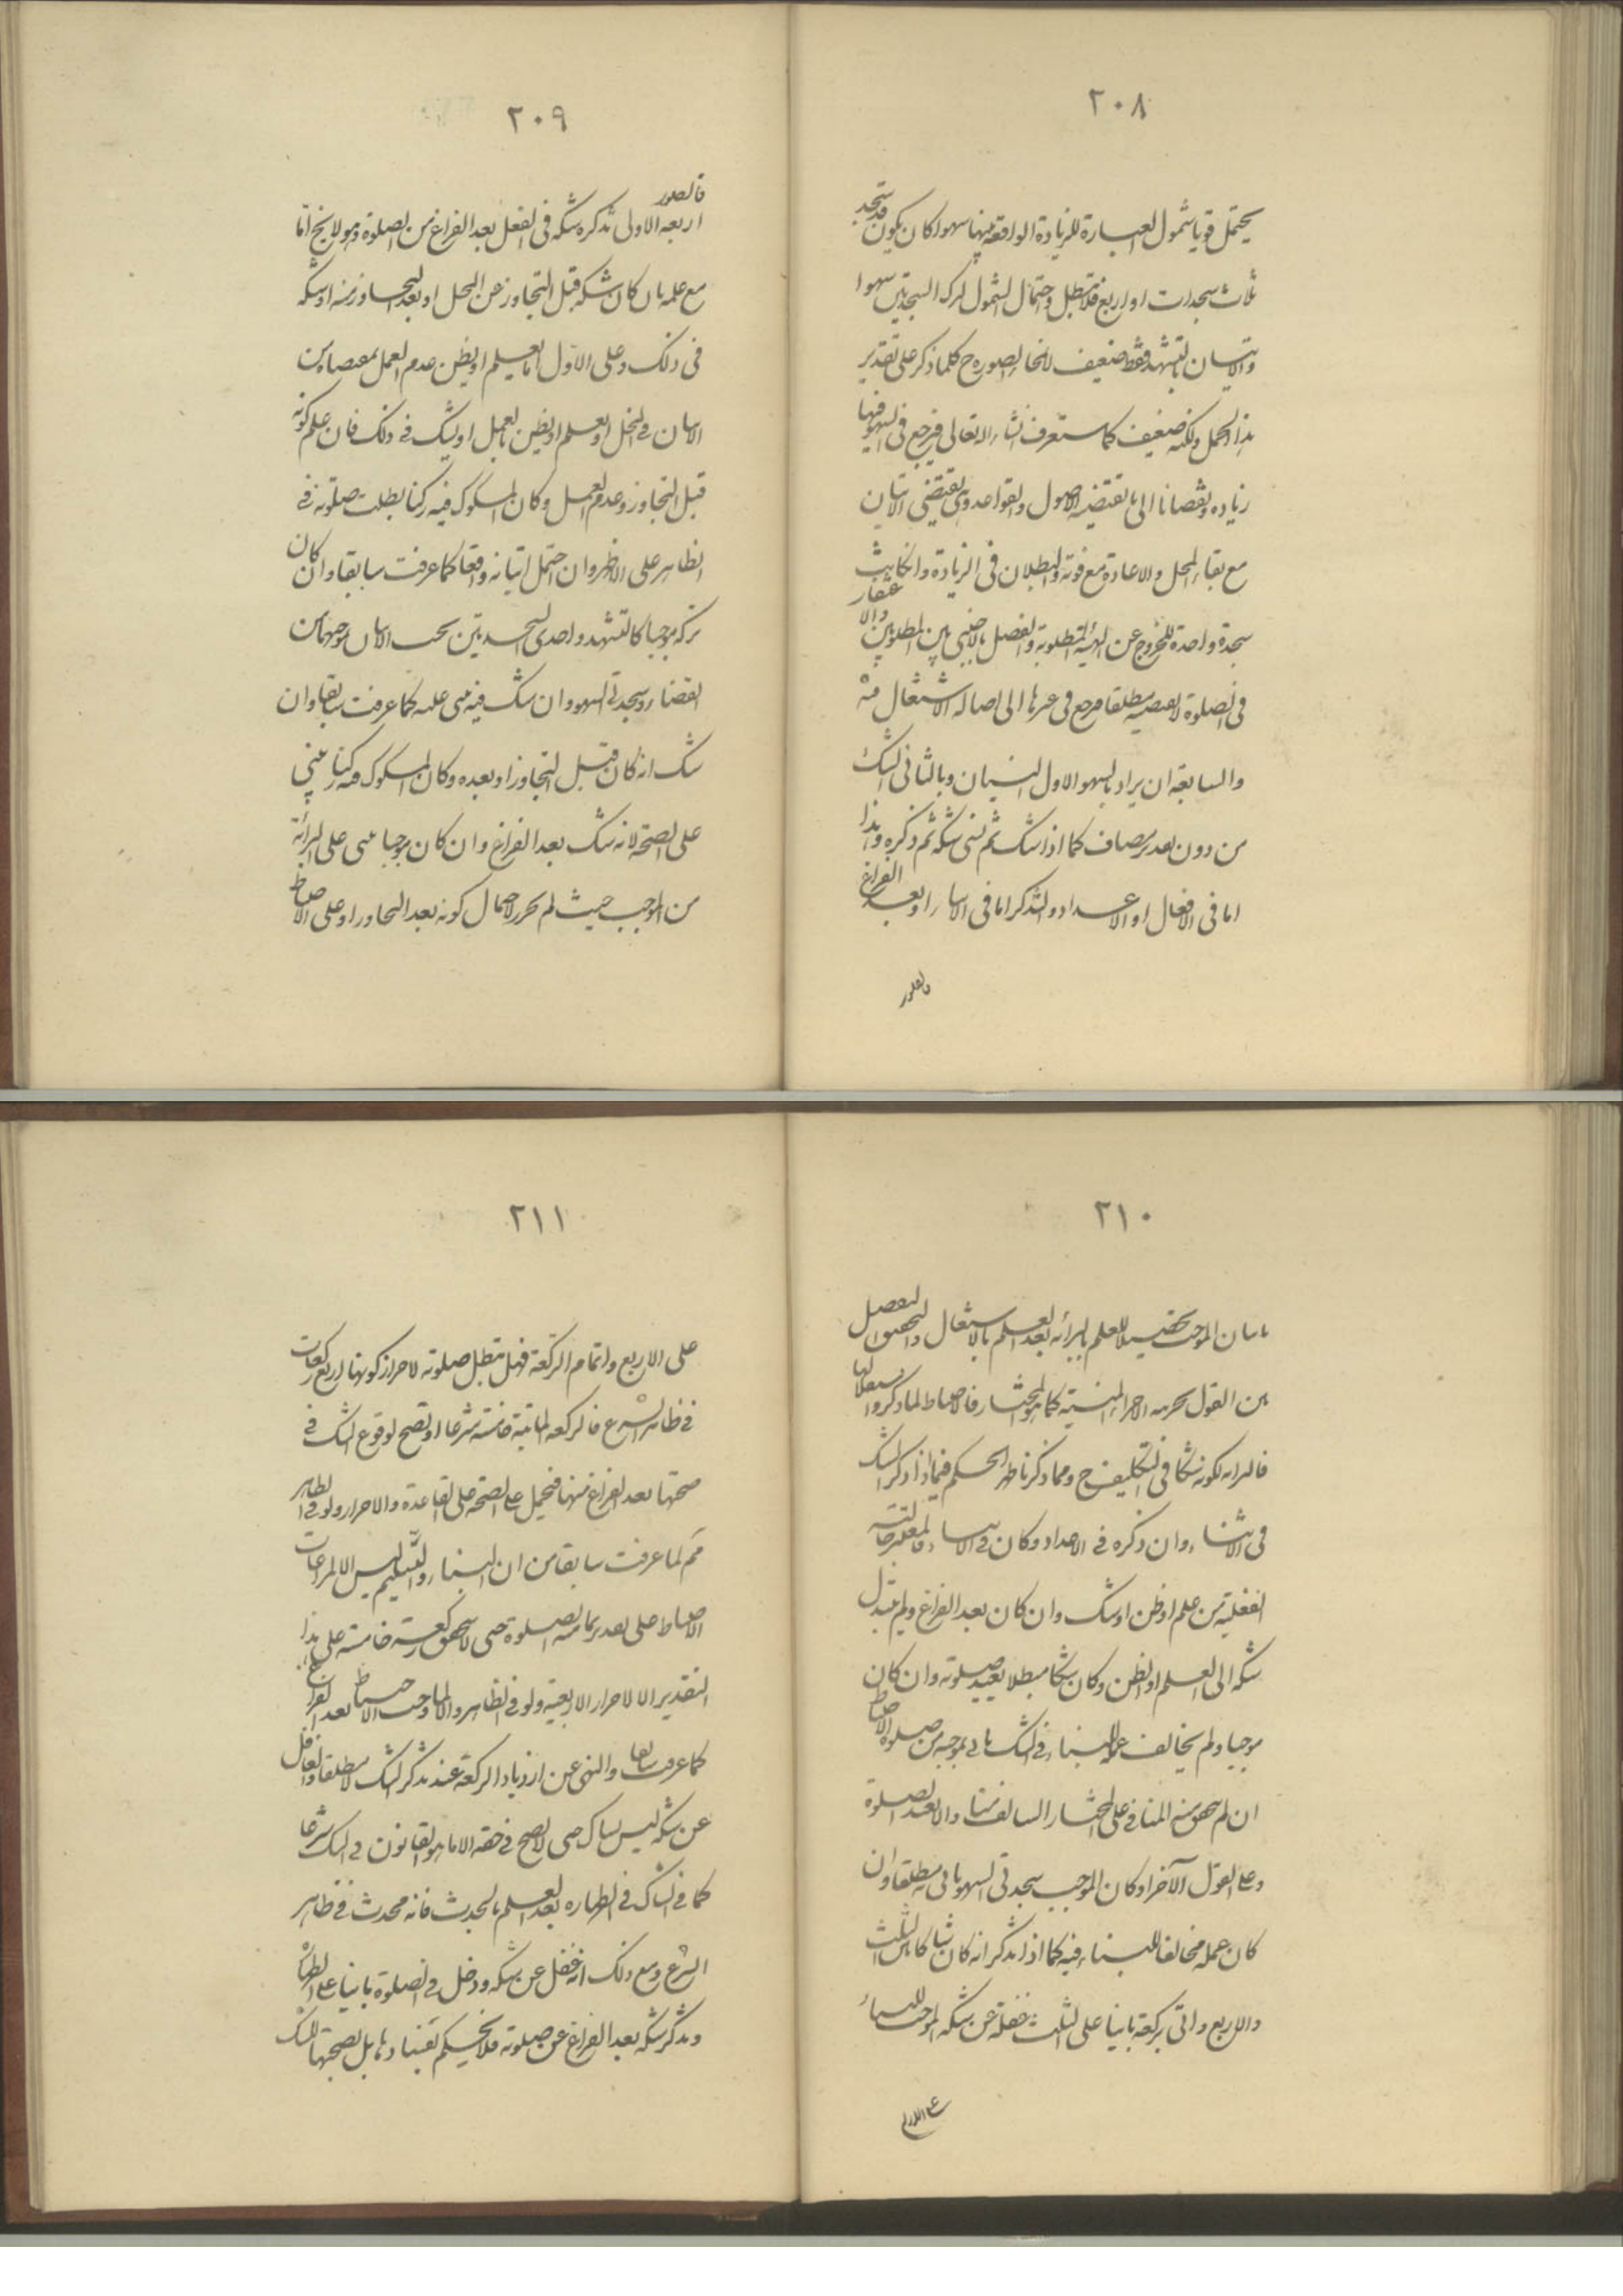 ٢٠٨
يحتمل قويا شمول العبارة للزيادة الواقعة فيها سهوا كان يكون قد سجد
ثلاث سجدات او اربع فلا تبطل واحتمال الشمول لترك السجدتين سهوا
والاتيان بالتشهد فقط ضعيف الصورة ح كلما ذكر على تقدير
هذا الحمل ولكنه ضعيف كما ستعرف انشاء الله تعالى فيرجع في السهو فيها
زيادة ونقصانا الى ما تقتضيه الاصول والقواعد وهي تقتضي الاتيان
مع بقاء المحل والاعادة مع فوته والبطلان في الزيادة وان كانت
سجدة واحدة للخروج عن الهيئة المطلوبة والفصل بالاجنبي بين المطلوبين والا
في الصلوة مطلقا فيرجع في غيرها الى اصالة الاشتغال منه
والسابعة ان يراد بالسهو الاول النسيان وبالثاني الشك
من دون تقدير مضاف كما اذا شك ثم نسى شكه ثم ذكره وهذا
اما في الافعال او الاعداد والتذكر اما في الاثناء او بعد الفراغ
فالصور
٢٠٩
فالصور
اربعة الاولى تذكره شكه في الفعل بعد الفراغ من الصلوة وهو لا يخ اما
مع علمه بان كان شكه قبل التجاوز عن المحل او بعد التجاوز منه او شكه
في ذلك وعلى الاول اما يعلم او يظن عدم العمل بمقتضاه من
الاتيان في المحل او يعلم او يظن بالعمل او يشك في ذلك فان علم كونه
قبل التجاوز وعدم العمل وكان المشكوك فيه ركنا بطلت صلوته في
الظاهر على الاظهر وان احتمل اتيانه واقعا كما عرفت سابقا وان كان
تركه موجبا كالتشهد واحدى السجدتين يجب الاتيان بموجبهما من
القضاء وسجدتي السهو وان شك فيه بنى عليه كما عرفت سابقا وان
شك انه كان قبل التجاوز او بعده وكان المشكوك فيه ركنا يبنى
على الصحة لانه شك بعد الفراغ وان كان موجبا بنى على البرائة
من الموجب حيث لم يحرز لاحتمال كونه بعد التجاوز او على الاحتياط
٢١٠
باتيان الموجب تحصيلا للعلم بالبرائة بعد العلم بالاشتغال والتحقيق التفصيل
بين القول بجزئية الاجزاء المنسية كما هو المختار فالاحتياط لما ذكروا
فالبرائة لكونه شكا في التكليف ح ومما ذكرنا ظهر الحكم فيما اذا ذكر الشك
في الاثناء وان ذكره في الاعداد وكان في الاثناء فالمعتبر حالته
الفعلية من علم او ظن او شك وان كان بعد الفراغ ولم يتبدل
شكه الى العلم او الظن وكان شكا مبطلا يعيد صلوته وان كان
موجبا ولم يخالف عمله للبناء في الشك ياتي بموجبه من صلوة الاحتياط
ان لم يتحقق منه المنافي على المختار السالف منا والا يعيد الصلوة
وعلى القول الآخر او كان الموجب سجدتي السهو ياتي به مطلقا وان
كان عمله مخالفا للبناء فيه كما اذا تذكر انه كان شاكا بين الثلث
والاربع واتى بركعة بانيا على الثلث غفلة عن شكه الموجب للبناء
على الاربع
٢١١
على الاربع واتمام الركعة فهل تبطل صلوته لاحراز كونها اربع ركعات
في ظاهر الشرع فالركعة الماتية خامسة شرعا او تصح لوقوع الشك في
صحتها بعد الفراغ منها فيحمل على الصحة على القاعدة والاحراز ولو في الظاهر
مم لما عرفت سابقا من ان البناء والتسليم ليس الا لمراعات
الاحتياط على تقدير تمامية الصلوة حتى لا يتحقق ركعة خامسة على هذا
التقدير الا لاحراز الاربعية ولو في الظاهر والا لما وجب الاحتياط بعد الفراغ
كما عرفت سابقا والنهى عن ازدياد الركعة عند تذكر الشك لا مطلقا والغافل
عن شكه ليس بشاك حتى لا يصح في حقه الا ما هو القانون في الشك شرعا
كما في الشاك في الطهارة بعد العلم بالحدث فانه محدث في ظاهر
الشرع ومع ذلك اذا غفل عن شكه ودخل في الصلوة بانيا على الطهارة
وتذكر شكه بعد الفراغ عن صلوته فلا يحكم بفسادها بل بصحتها للشك